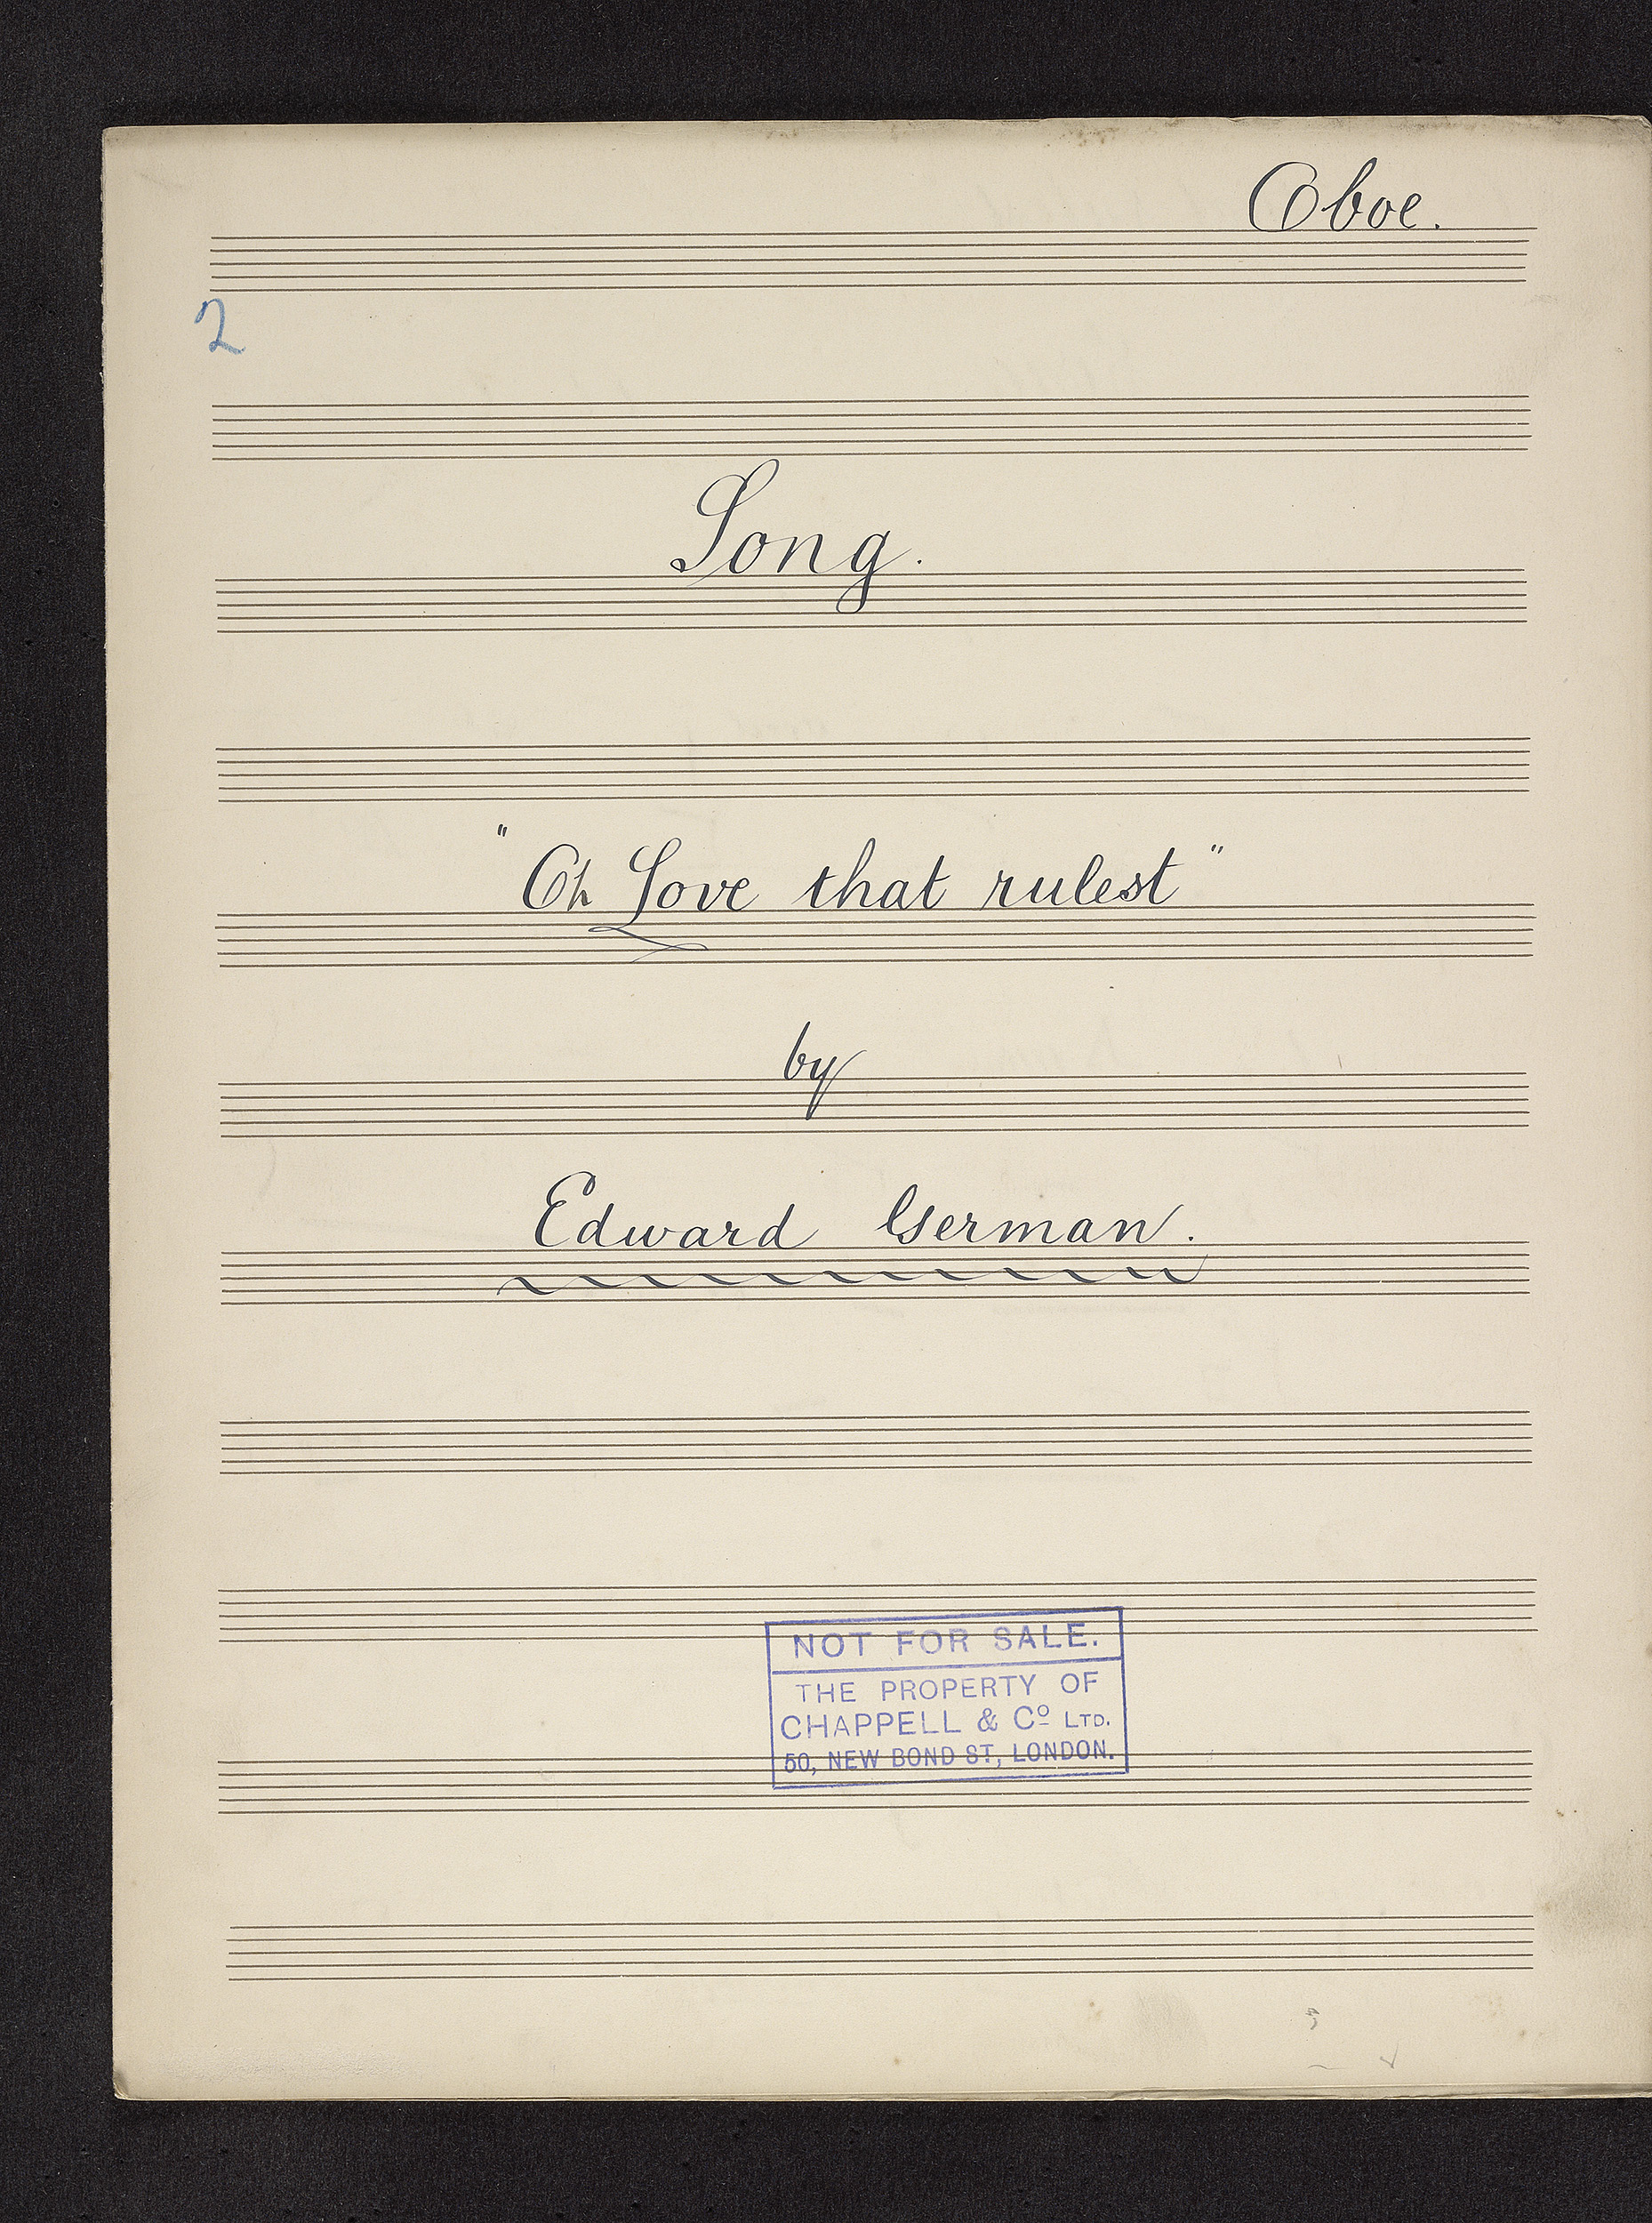 Oboe.
2
Song.
"Oh Love that rulest"
by
Edward German.
NOT FOR SALE.
THE PROPERTY OF
CHAPPELL & Cº LTD.
50, NEW BOND ST, LONDON.